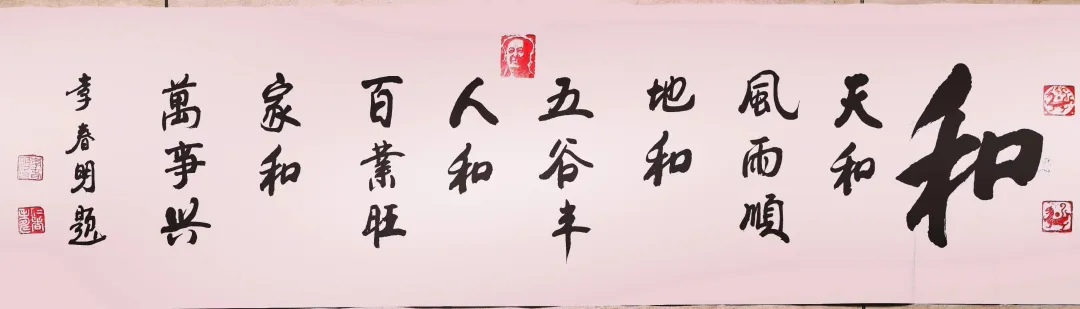 和
天和
風雨順
地和
五谷丰
人和
百業旺
家和
萬事興
李春明題